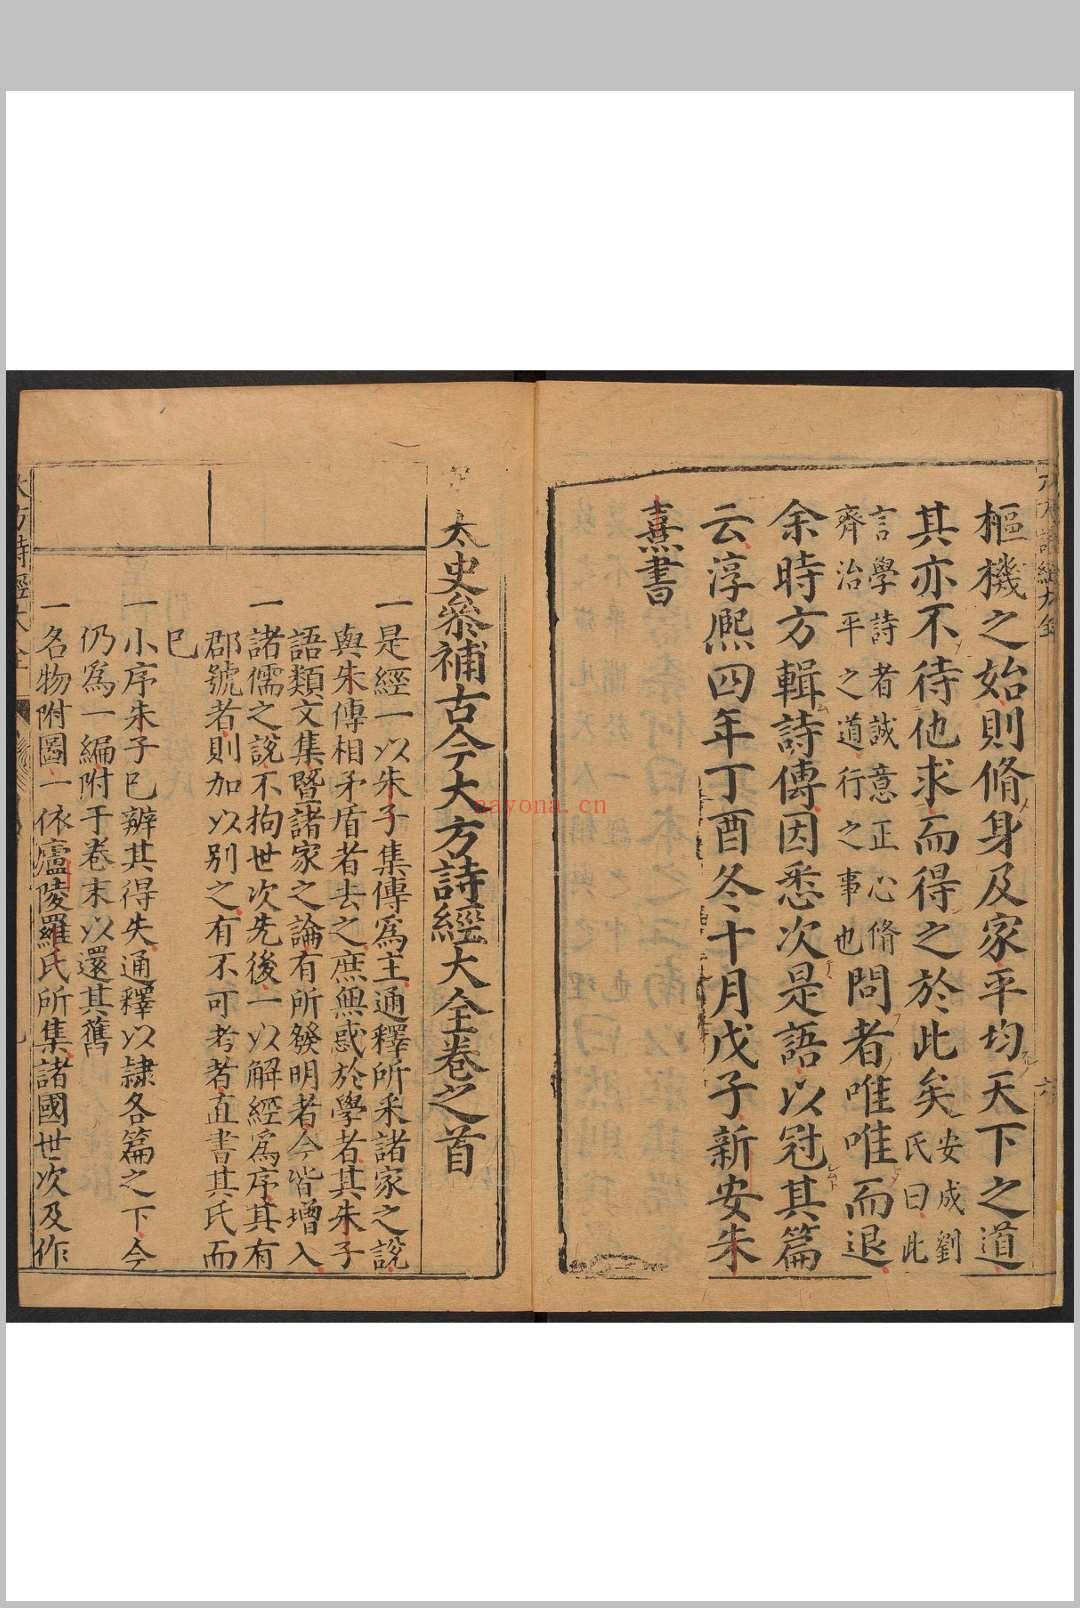 樞機之始則脩身及家平均天下之道
其亦不待他求而得之於此矣安成劉
氏曰此
言學詩者誠意正心脩
齊治平之道行之事也問者唯唯而退
余時方輯詩傳因悉次是語以冠其篇
云淳熈四年丁酉冬十月戊子新安朱
熹書
太史叅補古今大方詩經大全卷之首
一是經一以朱子集傳爲主通釋所采諸家之說
與朱傳相矛盾者去之庶無惑於學者其朱子
語類文集曁諸家之論有所發明者今皆増入
一諸儒之說不拘世次先後一以解經爲序其有
郡號者則加以别之有不可考者直書其氏而
巳
一小序朱子巳辯其得失通釋以隷各篇之下今
仍爲一編附于卷末以還其舊
一名物附圖一依廬陵羅氏所集諸國世次及作
大方詩經大全
nayona.cn